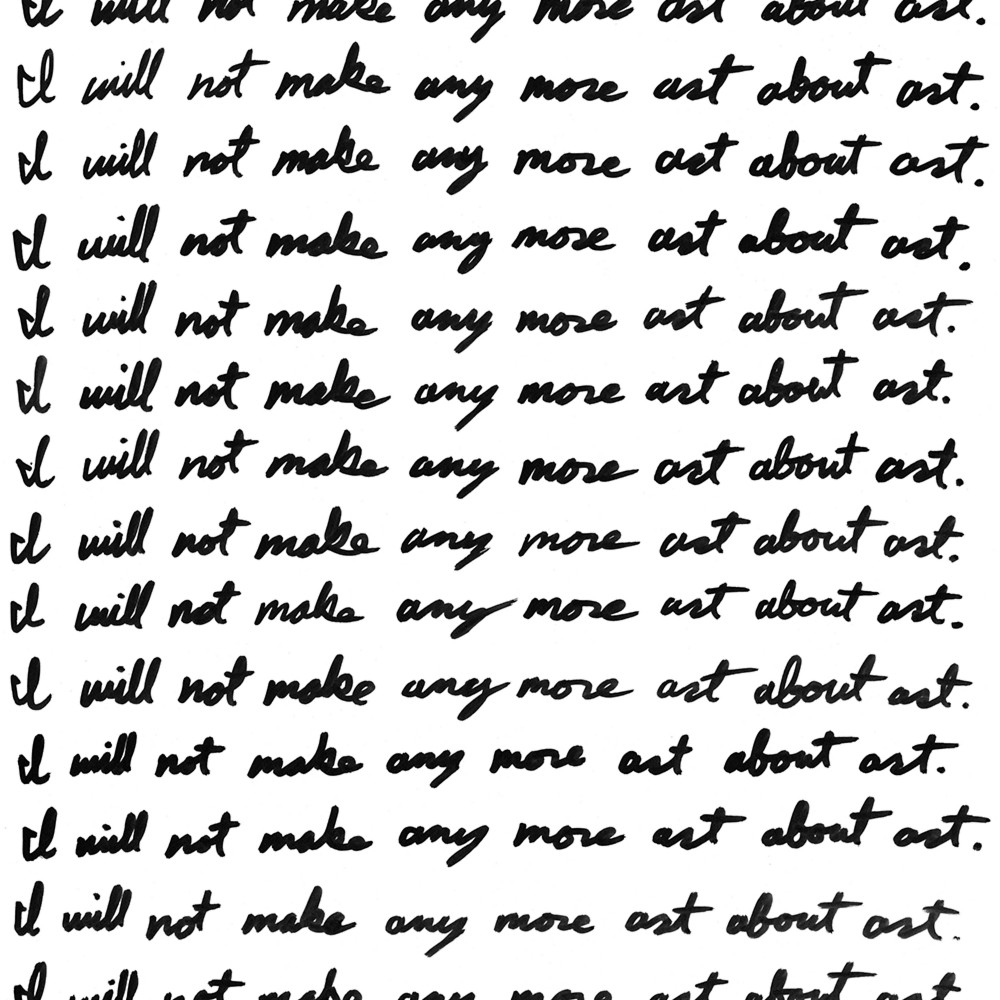 I will not make any more art about art.
I will not make any more art about art.
I will not make any more art about art.
I will not make any more art about art.
I will not make any more art about art.
I will not make any more art about art.
I will not make any more art about art.
I will not make any more art about art.
I will not make any more art about art.
I will not make any more art about art.
I will not make any more art about art.
I will not make any more art about art.
I will not make any more art about art.
I will not make any more art about art